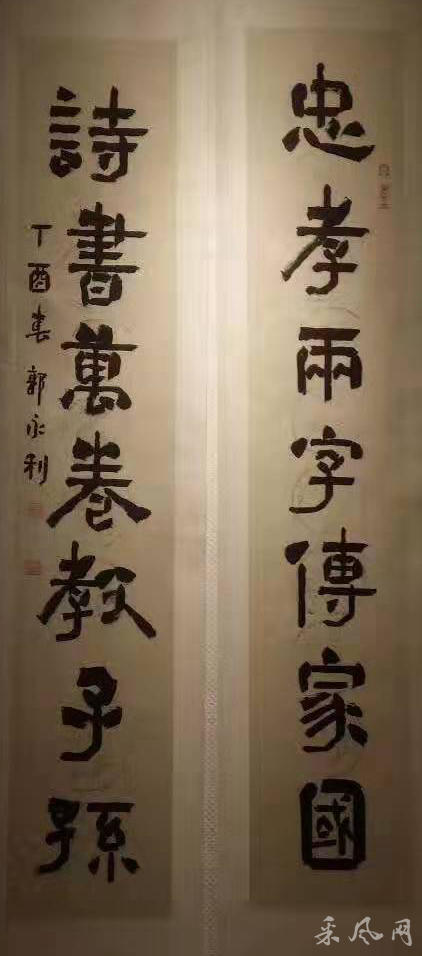 忠孝兩字傳家國
詩書萬卷教子孫
丁酉春 郭永利
采风网